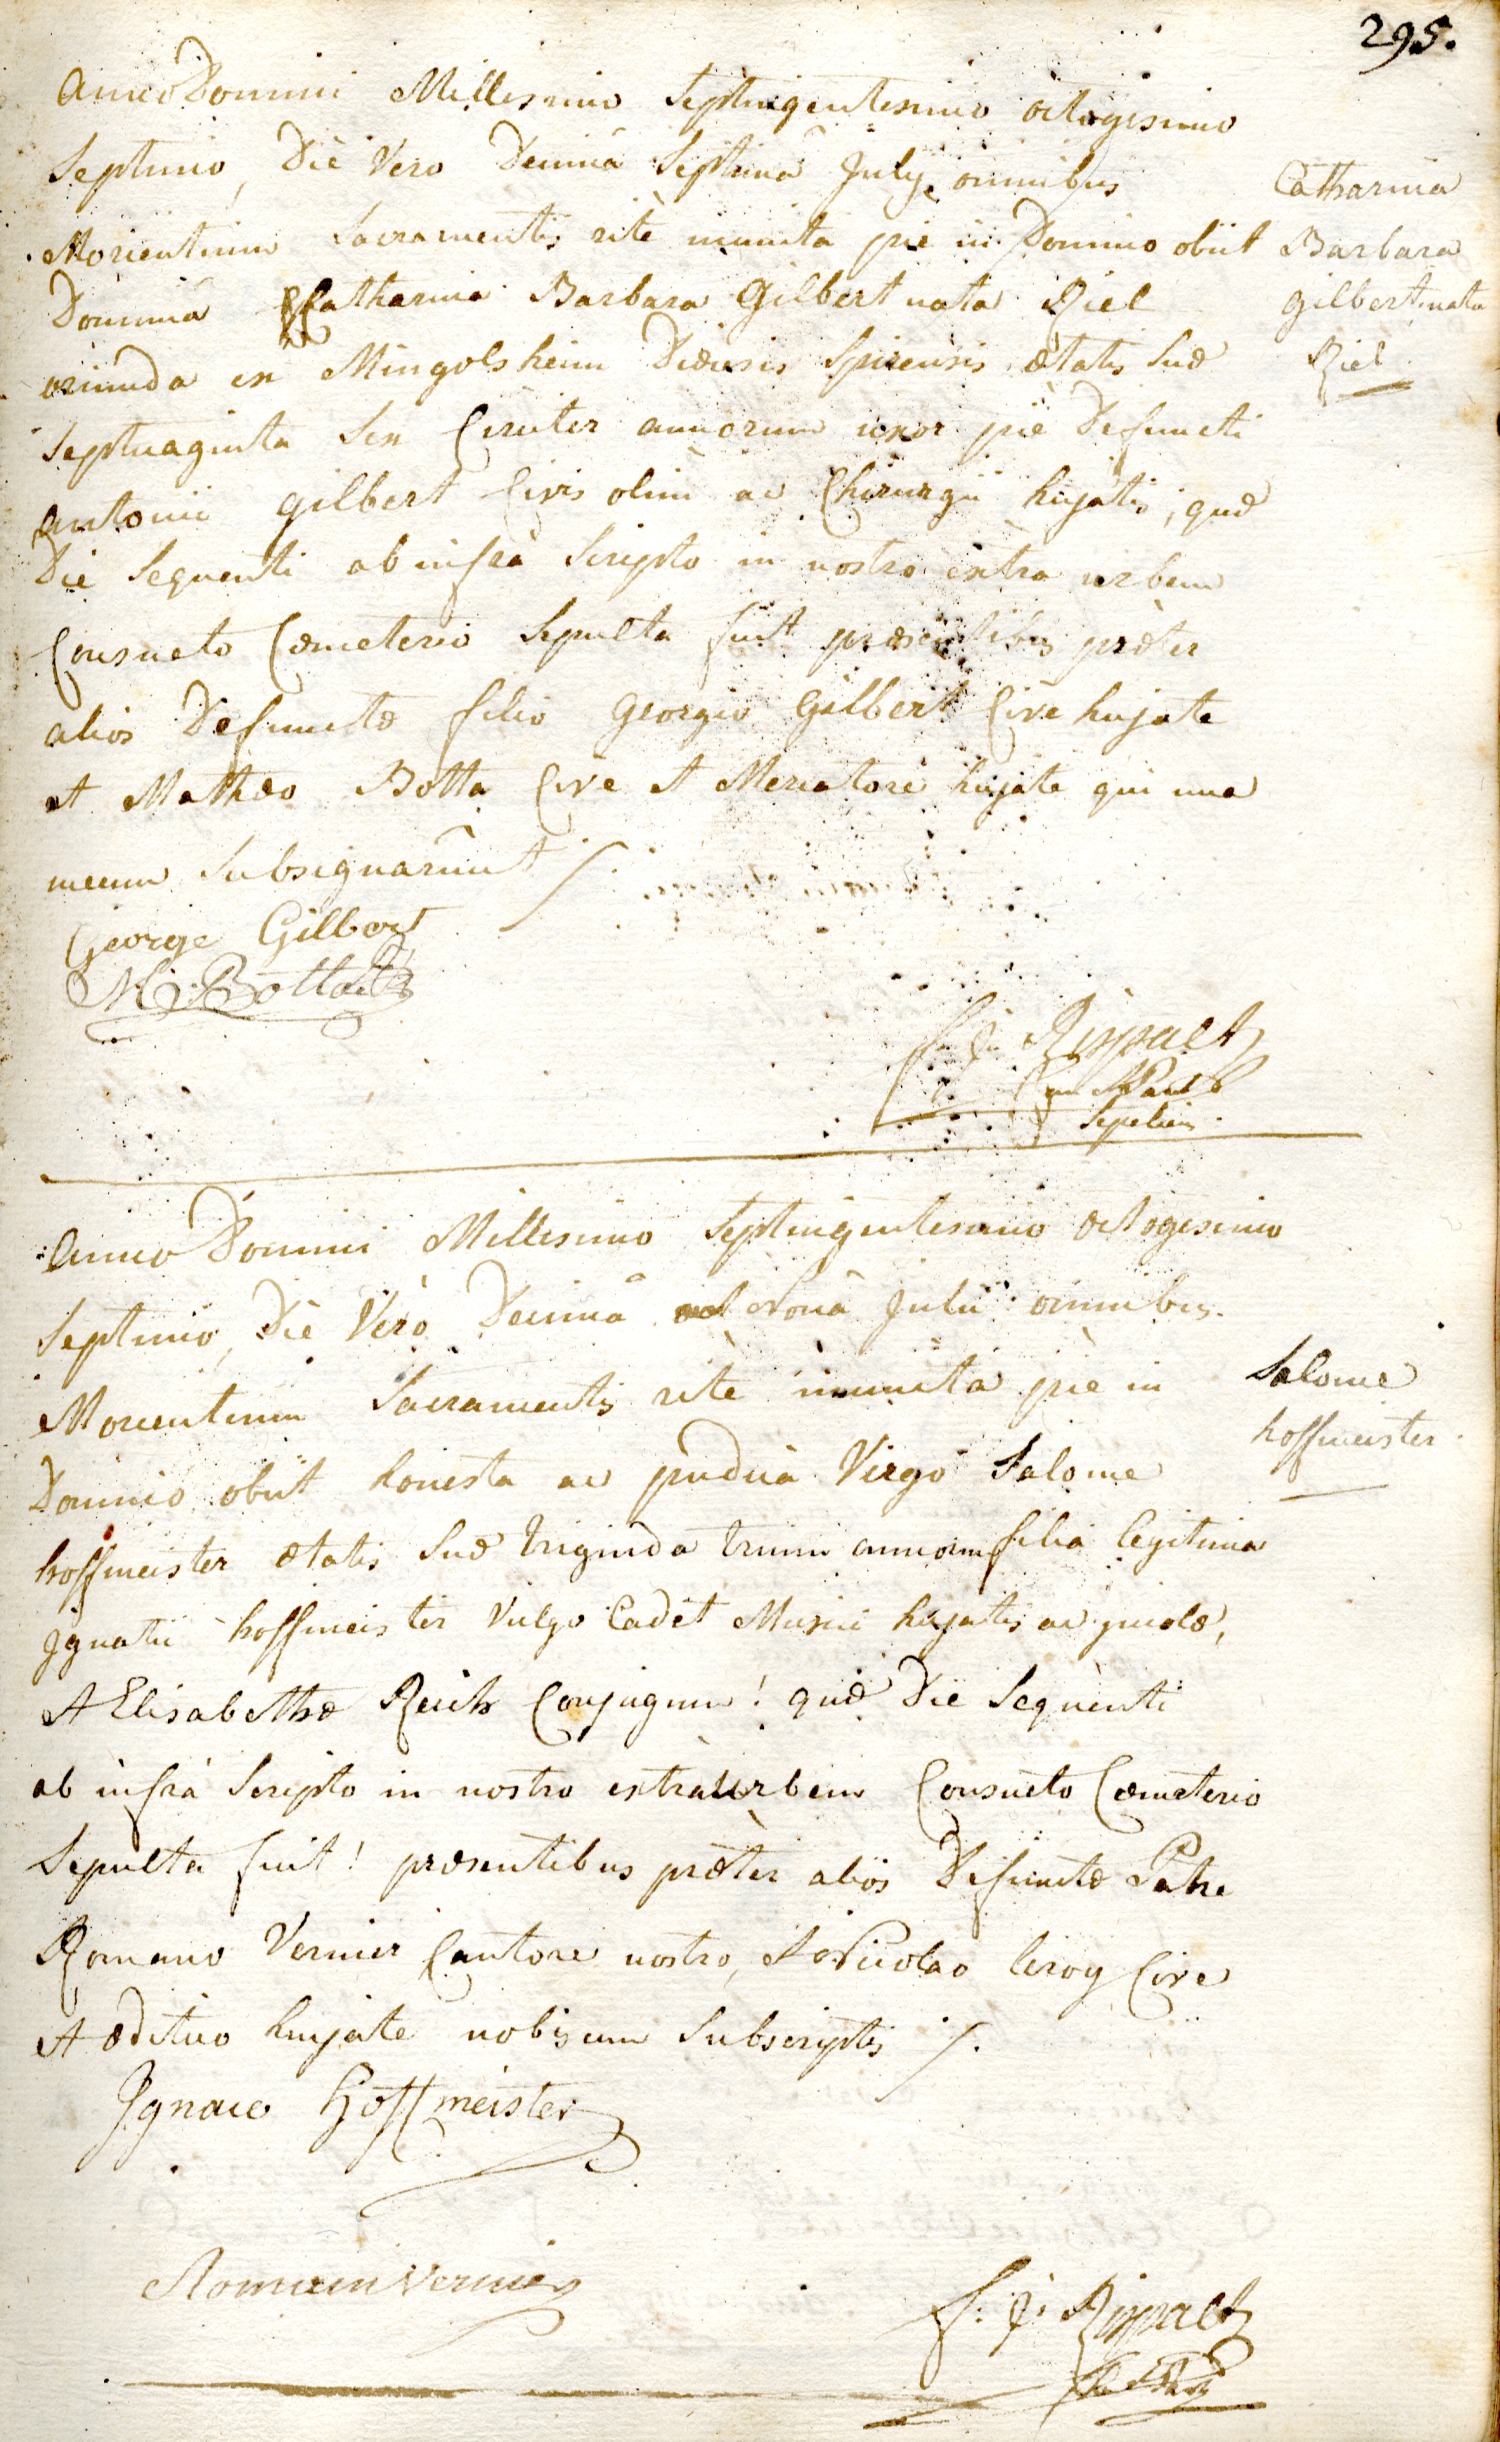 295.
Anno Domini Millesimo Septingentesimo octogesimo
Septimo, Die Vero Decimâ Septimâ July omnibus
Morientium Sacramentis ritè munita pie in Domino obiit
Domina Catharina Barbara Gilbert nata Riel
oriunda ex Mingolsheim Diœcesis Spirensis ætatis suæ
Septuaginta Sex Circiter annorum uxor piè Defuncti
Antonii Gilbert Civis olim ac Chirurgii hujatis, quæ
Die Sequenti ab infrà Scripto in nostro extra urbem
Consueto Cœmeterio Sepulta fuit præsentibus præter
alios Defunctæ filio Georgio Gilbert Cive hujate
et Mathæo Botta Cive et Mercatore hujate qui una
mecum Subsignarunt /.
Catharina
Barbara
Gilbert nata
Riel
George Gilbert
M: Botta
f. j. Rippalt
Sepeliens
Anno Domini Millesimo Septingentesimo octogesimo
Septimo, Die Vero Decimâ Nonâ Julii omnibus
Morientium Sacramentis ritè munita piè in
Domino obiit honesta ac pudica Virgo Salome
hoffmeister ætatis suæ triginda trium annorum filia legitima
Ignatii hoffmeister Vulgo Cadet Musici hujatis ac incolæ,
et Elisabethæ Reich Conjugum! quæ Die Sequenti
ab infrà Scripto in nostro extrà urbem Consueto Cœmeterio
Sepulta fuit! præsentibus præter alios Defunctæ Patre
Romano Vernier Cantore nostro, et Nicolao leroy Cive
et ædituo hujate nobiscum Subscriptis /.
Salome
hoffmeister.
Ignace Hoffmeister
Romain Vernier
f: j: Rippalt